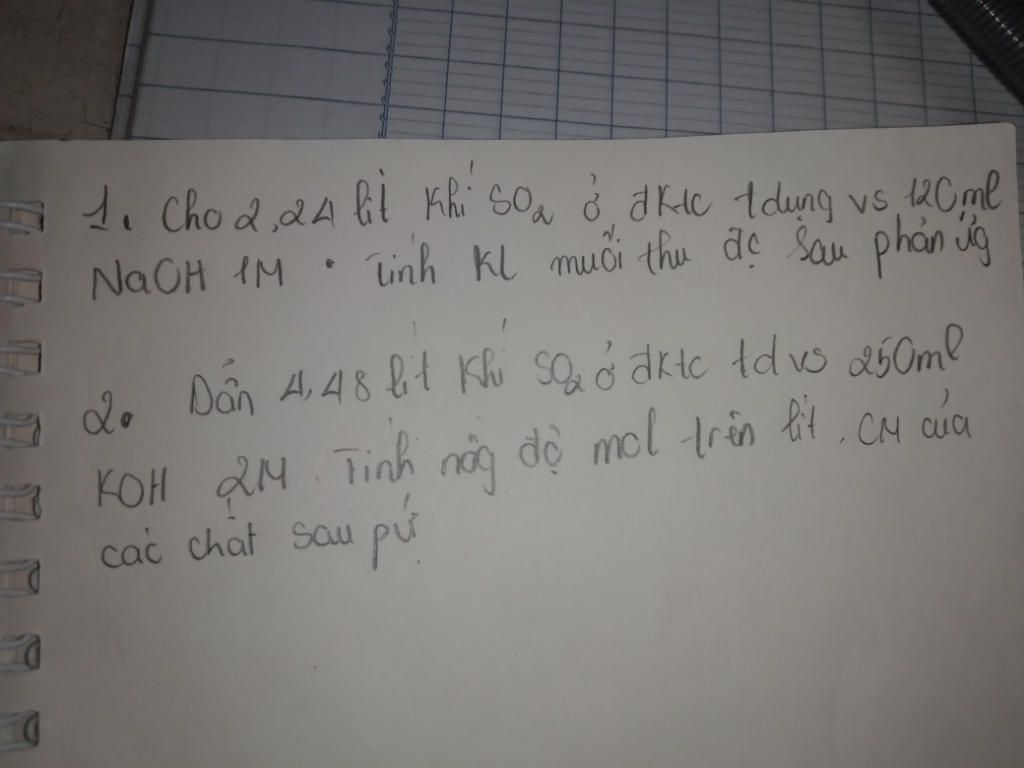 1. Cho 2,24 lít khí SO2 ở đktc tdụng vs 120ml
NaOH 1M . Tính KL muối thu đc sau phản ứg
2. Dẫn 4,48 lít khí SO2 ở đktc td vs 250ml
KOH 2M. Tính nồg độ mol trên lít. CM của
các chất sau pứ.